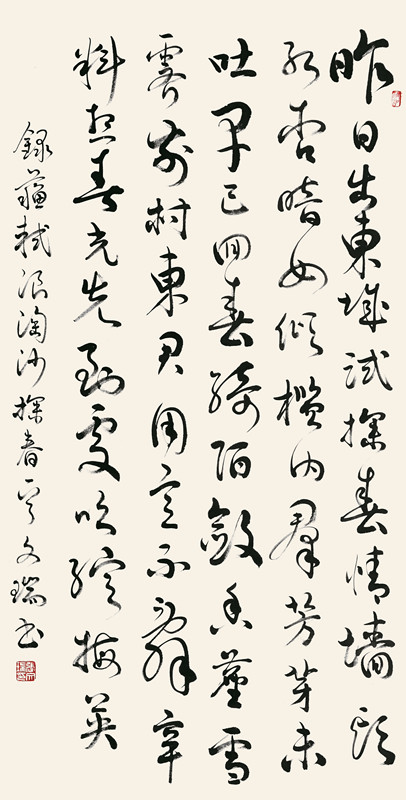 昨日出東城試探春情墻頭
紅杏暗如傾檻內羣芳芽未
吐早已回春綺陌斂香塵雪
霽前村東君用意不辭辛
料想春光先到處吹綻梅英
錄蘇軾浪淘沙探春 文瑞書